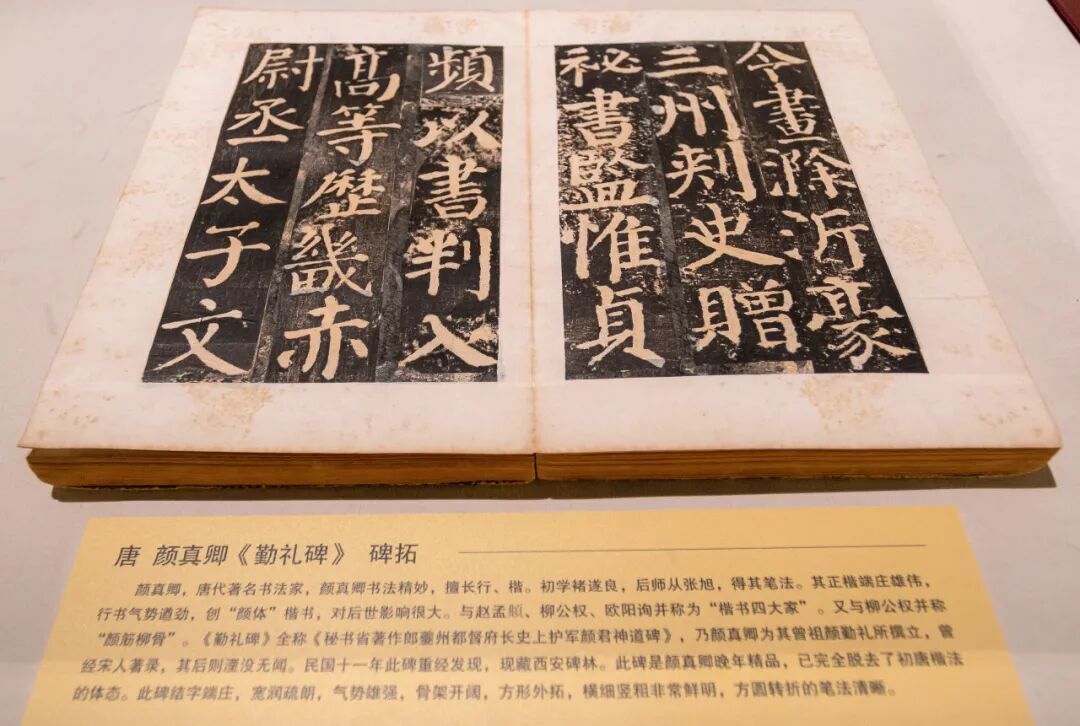 令畫滁沂豪
三州刾史贈
祕書監惟貞
頻以書判入
髙等歷畿赤
尉丞太子文
唐 颜真卿《勤礼碑》 碑拓
颜真卿，唐代著名书法家，颜真卿书法精妙，擅长行、楷。初学褚遂良，后师从张旭，得其笔法。其正楷端庄雄伟，
行书气势遒劲，创“颜体”楷书，对后世影响很大。与赵孟頫、柳公权、欧阳询并称为“楷书四大家”。又与柳公权并称
“颜筋柳骨”。《勤礼碑》全称《秘书省著作郎夔州都督府长史上护军颜君神道碑》，乃颜真卿为其曾祖颜勤礼所撰立，曾
经宋人著录，其后则湮没无闻。民国十一年此碑重经发现，现藏西安碑林。此碑是颜真卿晚年精品，已完全脱去了初唐楷法
的体态。此碑结字端庄，宽润疏朗，气势雄强，骨架开阔，方形外拓，横细竖粗非常鲜明，方圆转折的笔法清晰。